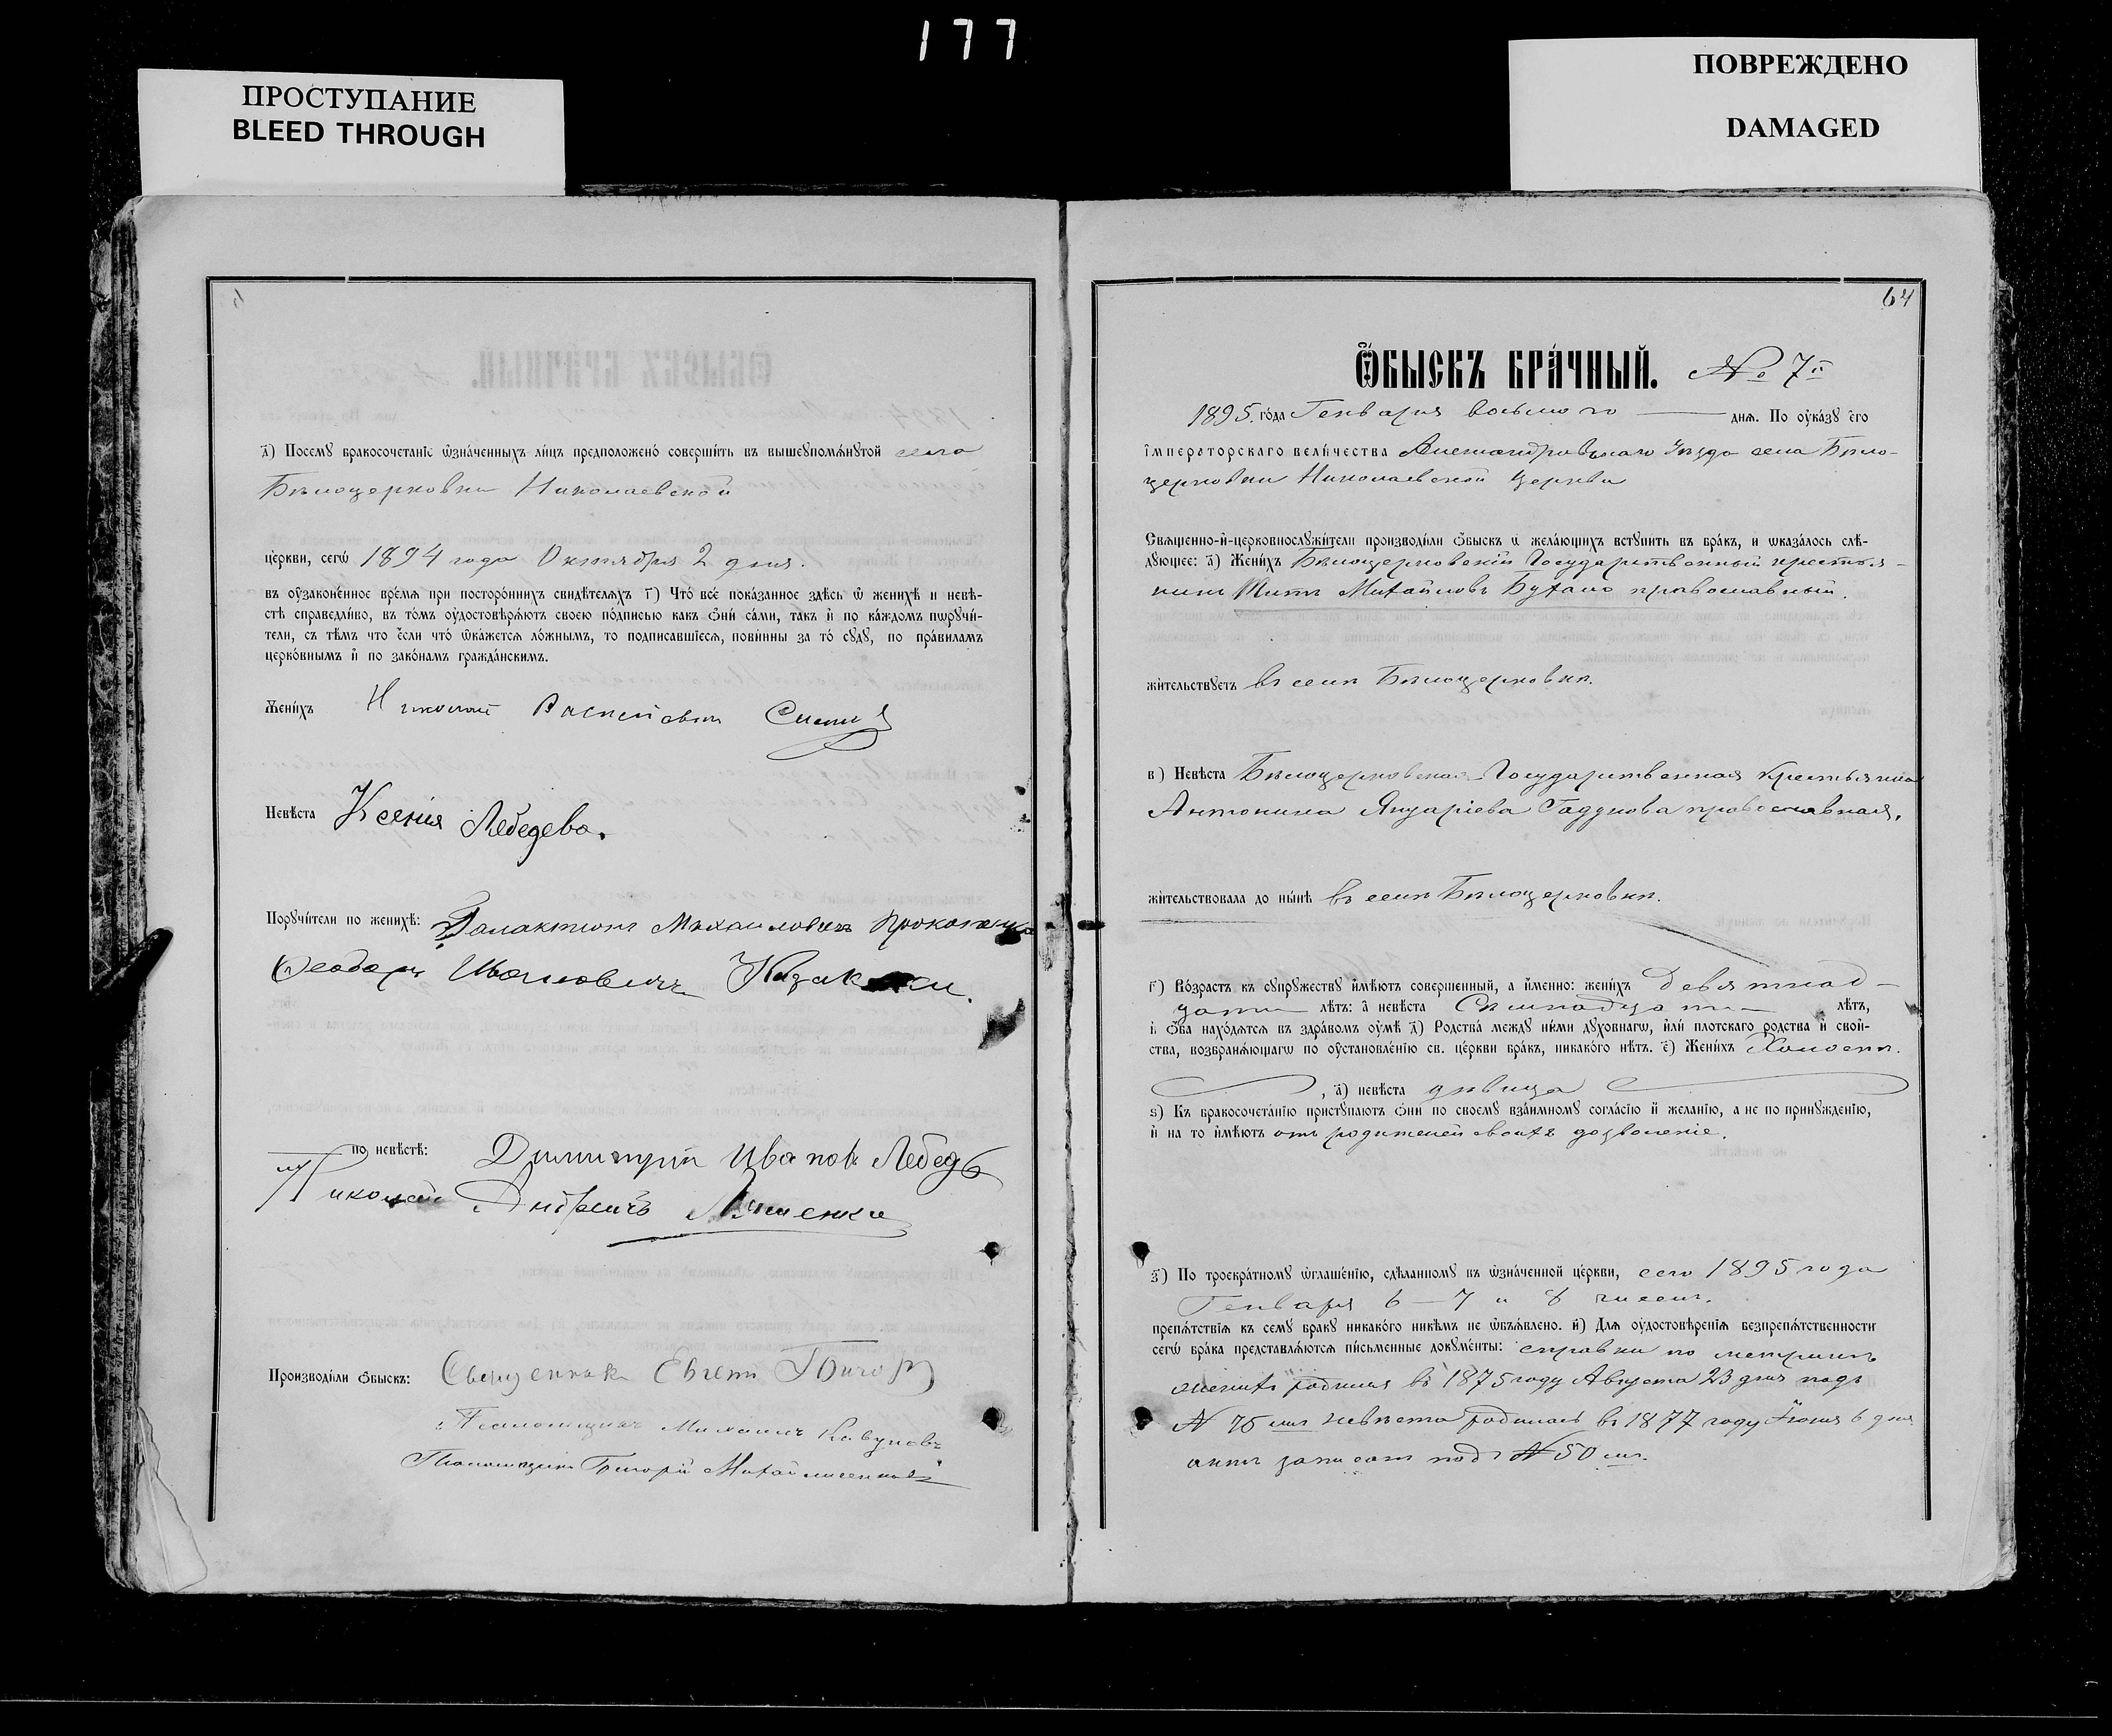 177
ПРОСТУПАНИЕ
BLEED THROUGH
ПОВРЕЖДЕНО
DAMAGED
д҃) Посемꙋ бракосочетанїе ѡзна́ченныхъ ли́цъ предположено́ соверши́ть въ вышеꙋпомѧ́нꙋтой села
Бѣлоцерковки Николаевской
це́ркви, сегѡ̀ 1894 года Октября 2 дня.
въ оу҆зако́ненное вре́мѧ при посторо́ннихъ свидѣ́телѧхъ г҃) Что̀ всѐ пока́занное здѣ́сь ѡ женихѣ̀ и невѣ́-
стѣ справедли́во, въ то́мъ оу҆достовѣрѧ́ютъ своею по́дписью какъ ѻни́ са́ми, такъ и҆ по ка́ждомъ пѡрꙋчи́-
тели, съ тѣ́мъ что є҆сли что̀ ѡка́жетсѧ ло́жнымъ, то подписавшїесѧ, пови́нны за то̀ сꙋдꙋ̀, по пра́виламъ
церко́внымъ и҆ по зако́намъ гражда́нскимъ.
Жени́хъ Николай
Невѣ́ста Ксенія Лебедева.
Порꙋчи́тели по женихѣ̀: Галактіонъ Михайловичъ
Феодоръ Ивановичъ
по невѣ́стѣ: Димитрій Ивановъ Лебедь
Николай Андреичъ
Производи́ли ѻбыскъ: Священникъ Евгеній
Псаломщикъ Михаилъ
Псаломщикъ Григорій
64
Ѻ҆БЫСКЪ БРА́ЧНЫЙ. № 7й
1895. го́да Генваря восьмого днѧ. По оу҆ка́зꙋ є҆го̀
і҆мператорскаго вели́чества Александровскаго Уѣзда села Бѣло-
церковки Николаевской Церкви
Свѧще́нно-и҆-церковнослꙋжи́тели производи́ли ѻбыскъ ѡ҆ жела́ющихъ встꙋпи́ть въ бра́къ, и ѡказа́лось слѣ́-
дꙋющее: а҃) Жени́хъ Бѣлоцерковскій Государственный крестья-
нинъ Титъ Михайловъ Бухало православный.
жи́тельствꙋетъ въ селѣ Бѣлоцерковкѣ.
в҃) Невѣ́ста Бѣлоцерковская Государственная крестьянка
Антонина Януаріева Гадунова православная.
жи́тельствовала до ны́нѣ въ селѣ Бѣлоцерковкѣ.
г҃) Во́зрастъ къ сꙋпрꙋ́жествꙋ и҆мѣ́ютъ соверше́нный, а и҆́менно: жени́хъ Девятнад-
цати лѣ́тъ: а҆ невѣ́ста Семнадцати лѣ́тъ,
и҆ ѻба нахо́дѧтсѧ въ здра́вомъ оу҆мѣ̀ д҃) Родства̀ ме́ждꙋ ни́ми дꙋхо́внагѡ, и҆ли пло́тскаго родства и҆ свой-
ства, возбранѧ́ющагѡ по оу҆становле́нїю св. це́ркви бра́къ, никако́го нѣ́тъ. є҃) Жени́хъ Холостъ.
, а҃) невѣ́ста дѣвица
ѕ҃) Къ бракосочета́нїю пристꙋпа́ютъ ѻни́ по своемꙋ̀ взаи́мномꙋ согла́сїю и҆ жела́нїю, а не по принꙋжде́нїю,
и҆ на то и҆мѣ́ютъ отъ родителей своихъ дозволеніе.
з҃) По троекра́тномꙋ ѡглаше́нїю, сдѣ́ланномꙋ въ ѡзна́ченной це́ркви, сего 1895 года
Генваря 6 – 7 и 8 чиселъ.
препѧ́тствїѧ къ семꙋ̀ бракꙋ никако́го никѣ́мъ не ѡбъѧ́влено. и҃) Длѧ оу҆достовѣ́ренїѧ безпрепѧ́тственности
сегѡ̀ бра́ка представлѧ́ютсѧ пи́сьменные докꙋме́нты: справки по метрикѣ
женихъ родился въ 1875 году Августа 23 дня подъ
№ 75 мъ невѣста родилась въ 1877 году Іюня 6 дня
актъ записанъ подъ № 50 мъ.